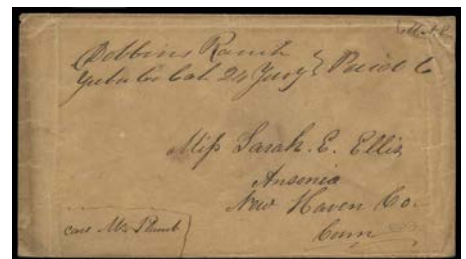 Dobbins Ranch
Yuba Co Cal. 24 Jany } Paid 6
Miss Sarah. E. Ellis
Ansonia
New Haven Co.
Conn
care Mr. Plumb